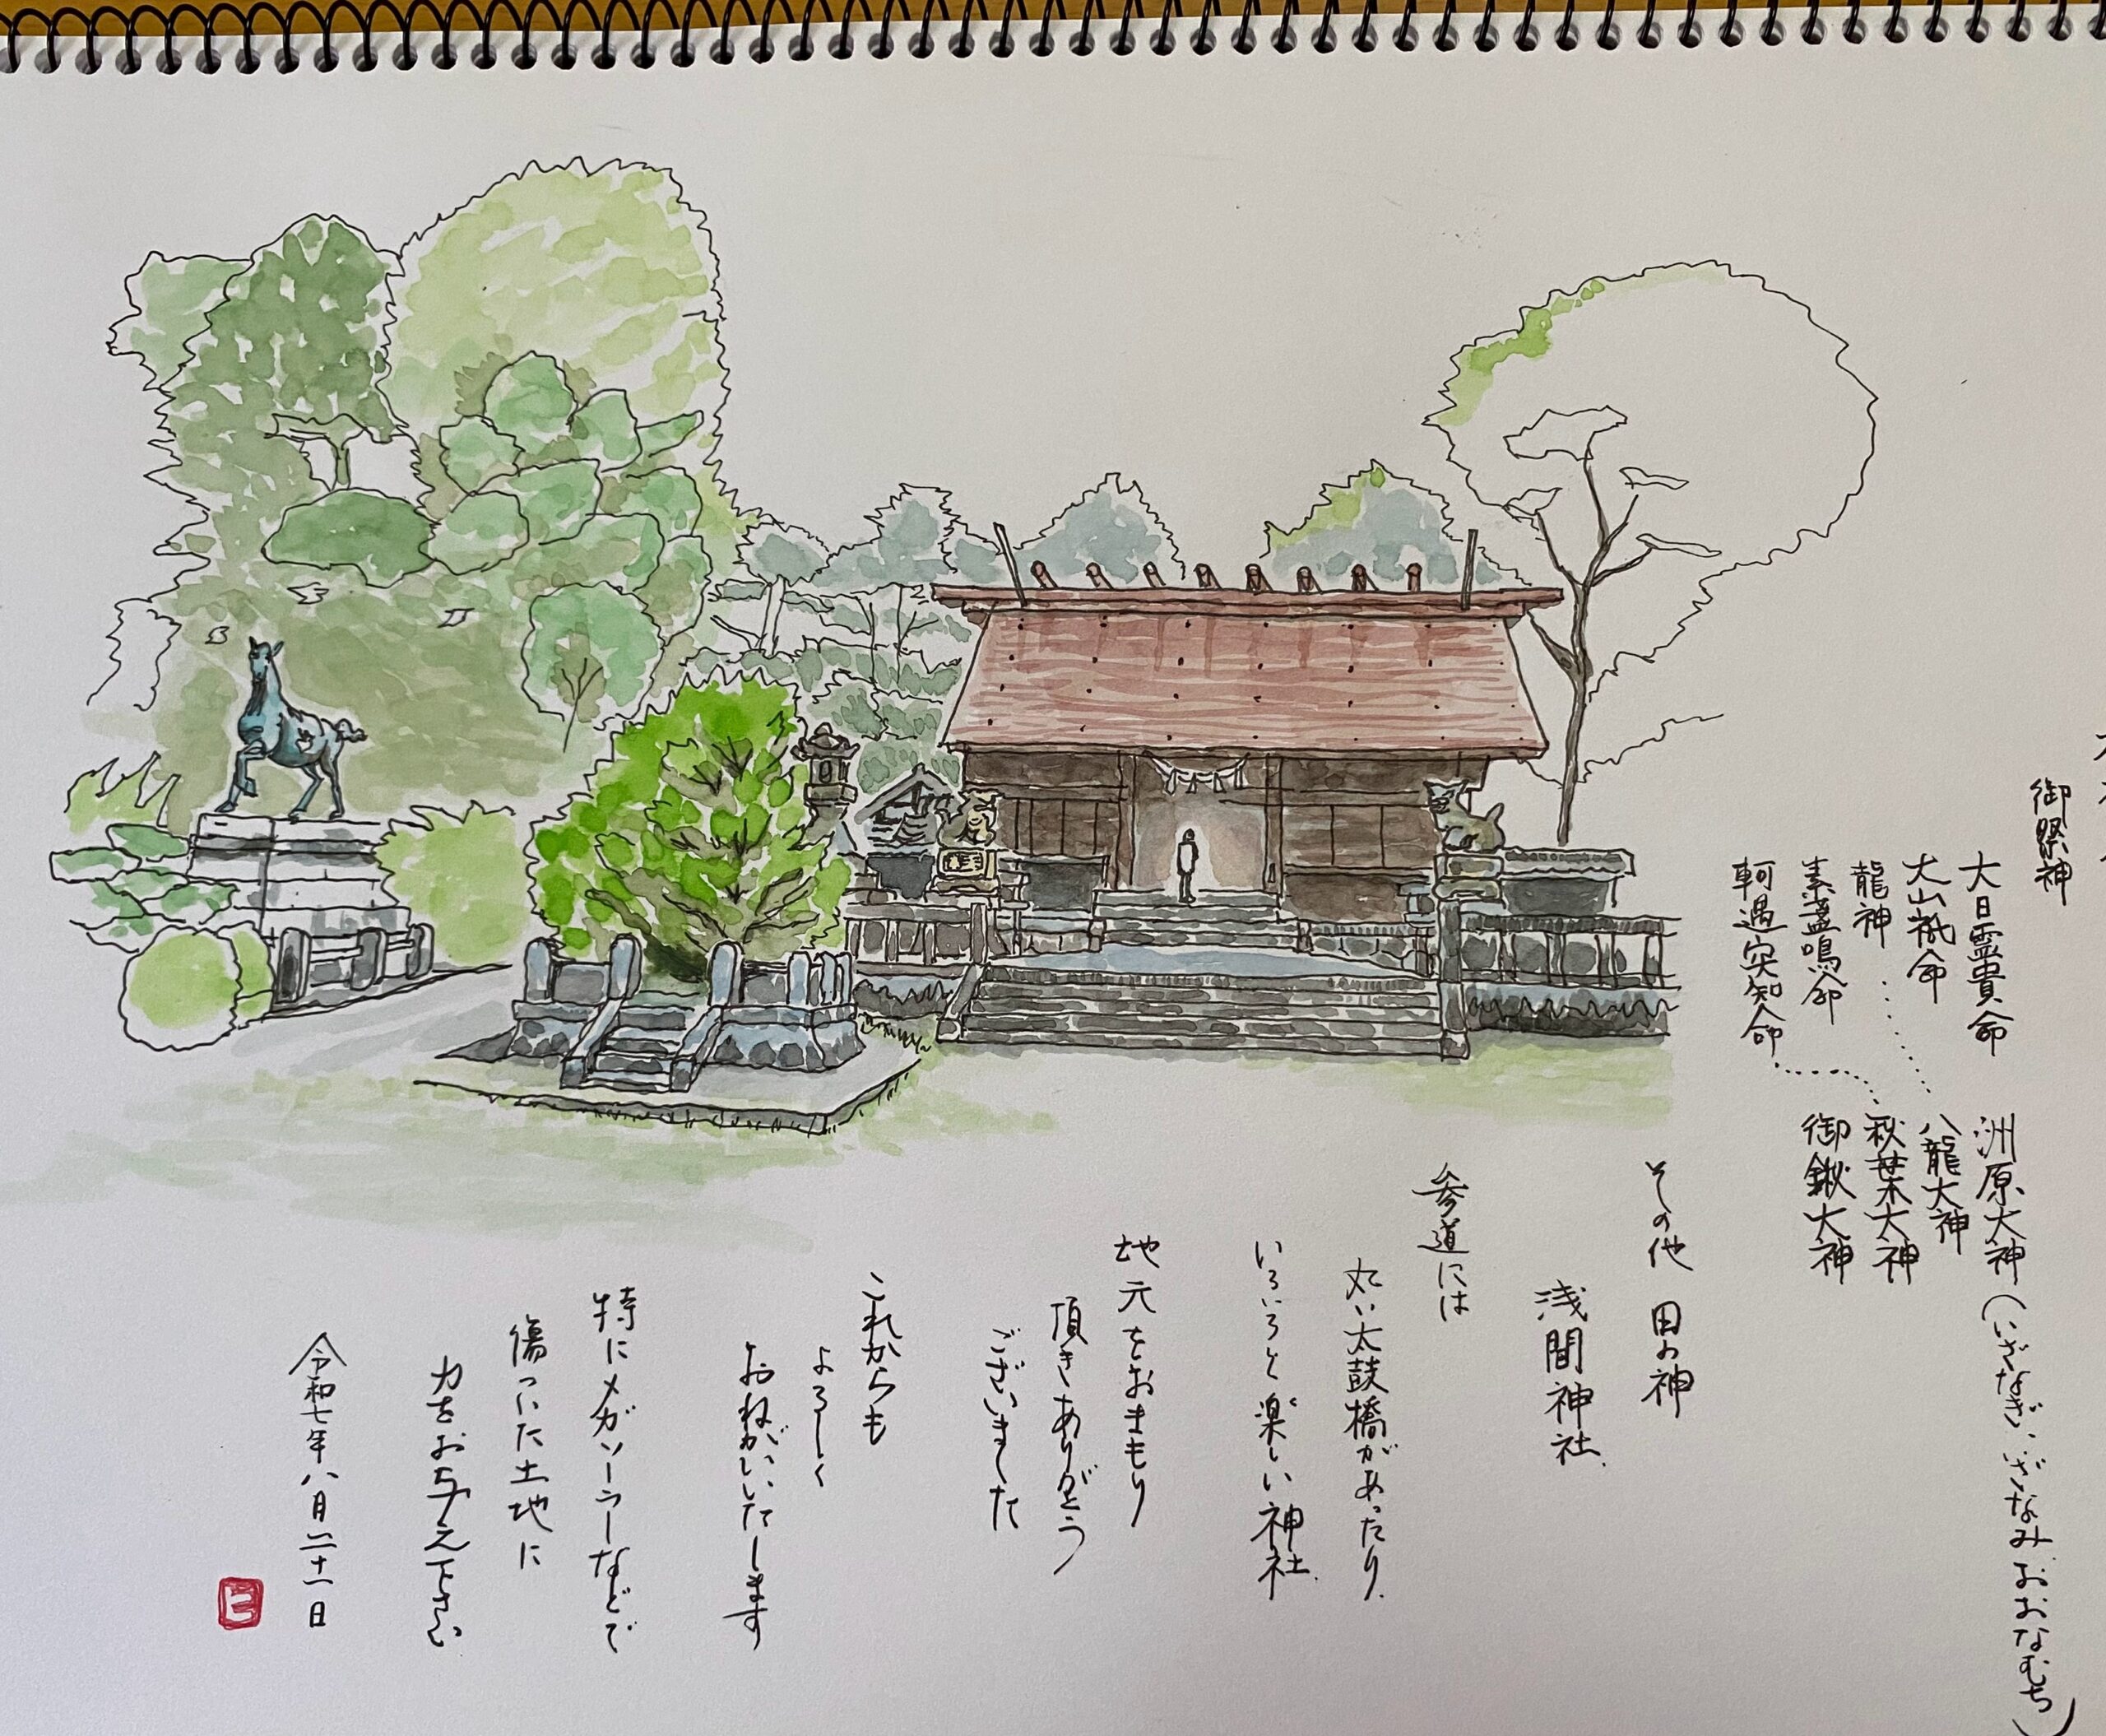 御祭神
大日霊貴命
大山祇命
龍神
素盞嗚命
軻遇突知命
洲原大神(いざなぎ、いざなみ おおなむち)
八龍大神
秋葉大神
御鍬大神
その他 田の神
浅間神社
参道には
丸い太鼓橋があったり
いろいろと楽しい神社
地元をおまもり
頂きありがとう
ございました
これからも
よろしく
おねがいいたします
特にメガソーラーなどで
傷ついた土地に
力をお与え下さい
令和七年八月二十一日
ヒ